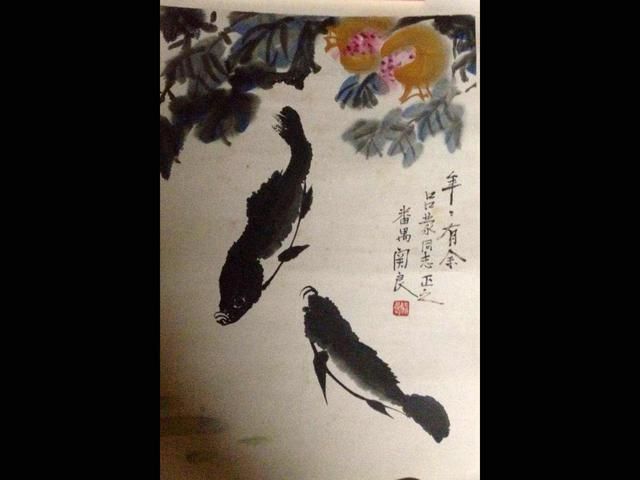 年々有余
吕蒙同志正之
番禺關良